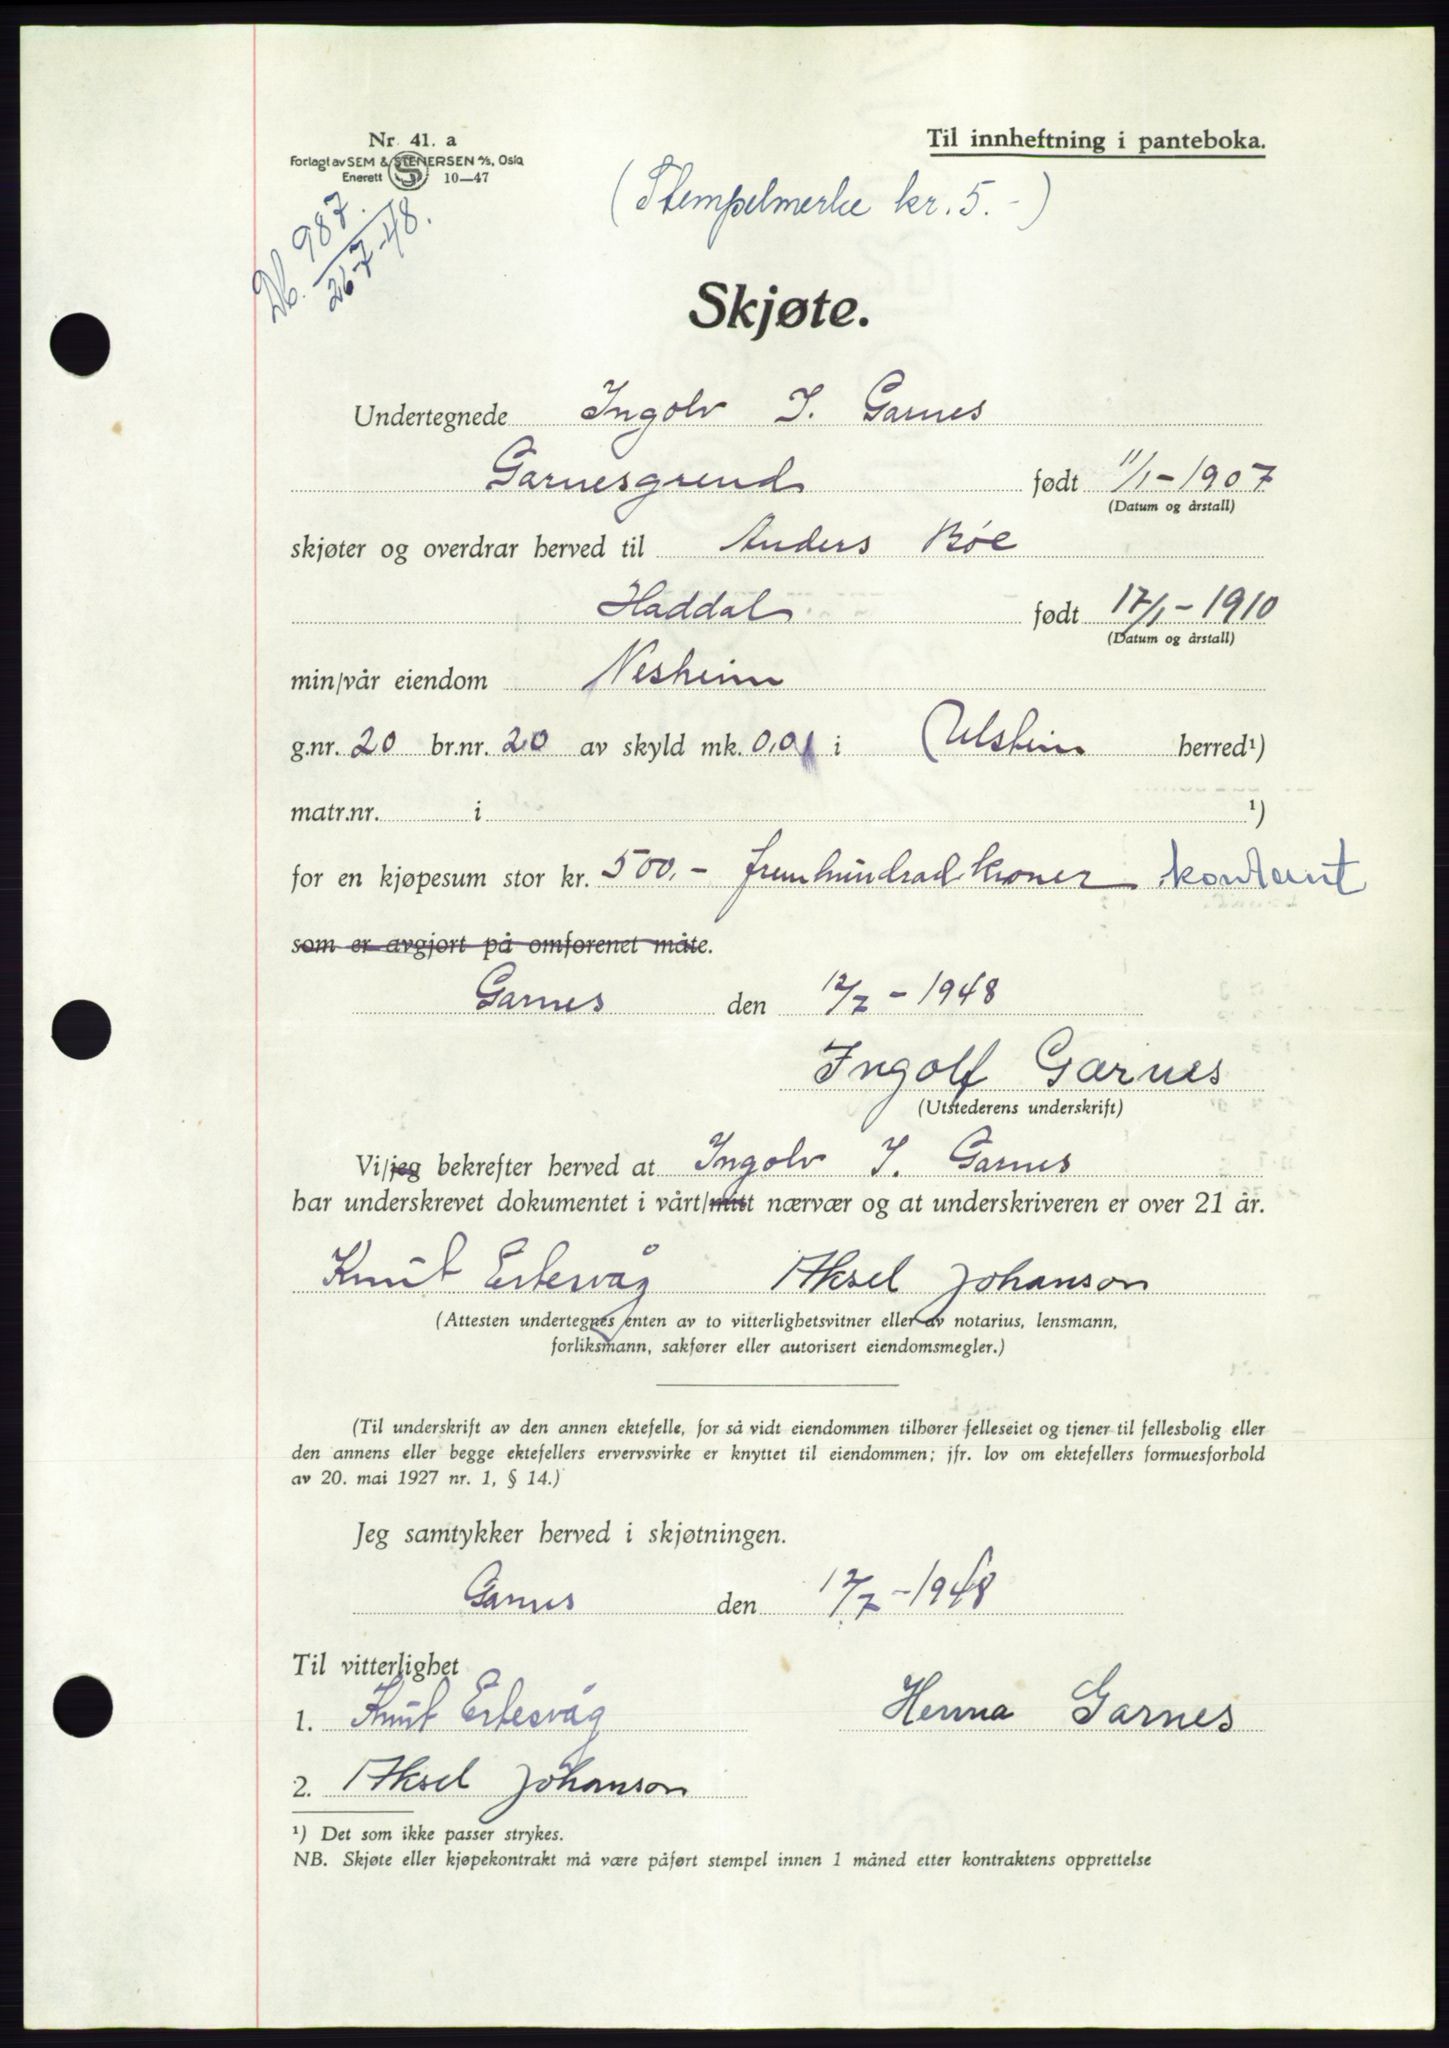 Nr. 41. a
Forlagt av SEM & STENERSEN A/S, Oslo
Enerett S 10—47
Til innheftning i panteboka.
(Stempelmerke kr. 5.-)
Db. 987.
26-7-48.
Skjøte.
Undertegnede Ingolv I. Garnes
Garnesgrend født 11/1-1907
(Datum og årstall)
skjøter og overdrar herved til Anders Bóe
Haddal født 17/1-1910
(Datum og årstall)
min/vår eiendom Nesheim
g.nr. 20 br.nr. 20 av skyld mk. 0,01 i Ulstein herred¹)
matr.nr. i ¹)
for en kjøpesum stor kr. 500.- femhundrad kroner kontant
som er avgjort på omforenet måte.
Garnes den 12/7-1948
Ingolf Garnes
(Utstederens underskrift)
Vi/jeg bekrefter herved at Ingolv I. Garnes
har underskrevet dokumentet i vårt/mitt nærvær og at underskriveren er over 21 år.
Knut Ertesvåg Aksel Johanson
(Attesten undertegnes enten av to vitterlighetsvitner eller av notarius, lensmann,
forliksmann, sakfører eller autorisert eiendomsmegler.)
(Til underskrift av den annen ektefelle, for så vidt eiendommen tilhører felleseiet og tjener til fellesbolig eller
den annens eller begge ektefellers ervervsvirke er knyttet til eiendommen; jfr. lov om ektefellers formuesforhold
av 20. mai 1927 nr. 1, § 14.)
Jeg samtykker herved i skjøtningen.
Garnes den 12/7-1948
Til vitterlighet
1. Knut Ertesvåg Herma Garnes
2. Aksel Johanson
¹) Det som ikke passer strykes.
NB. Skjøte eller kjøpekontrakt må være påført stempel innen 1 måned etter kontraktens opprettelse